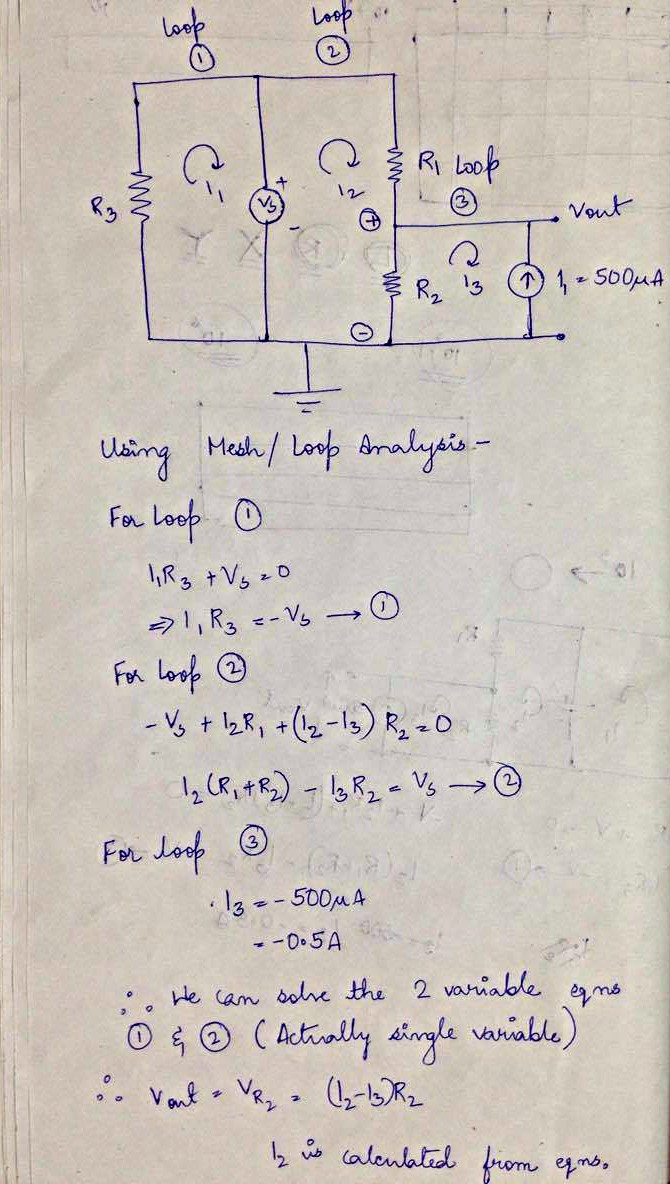 Loop
①
Loop
②
I₁
I₂
R₃
Vs
+
-
R₁ Loop
③
+
Vout
R₂
I₃
I₁ = 500μA
-
Using Mesh/Loop Analysis -
For Loop ①
I₁R₃ + Vs = 0
⇒ I₁R₃ = -Vs → ①
For Loop ②
- Vs + I₂R₁ + (I₂-I₃) R₂ = 0
I₂(R₁+R₂) - I₃R₂ = Vs → ②
For loop ③
I₃ = - 500μA
= -0.5A
∴ We can solve the 2 variable eqns
① & ② (Actually single variable)
∴ Vout = VR₂ = (I₂-I₃)R₂
I₂ is calculated from eqns.